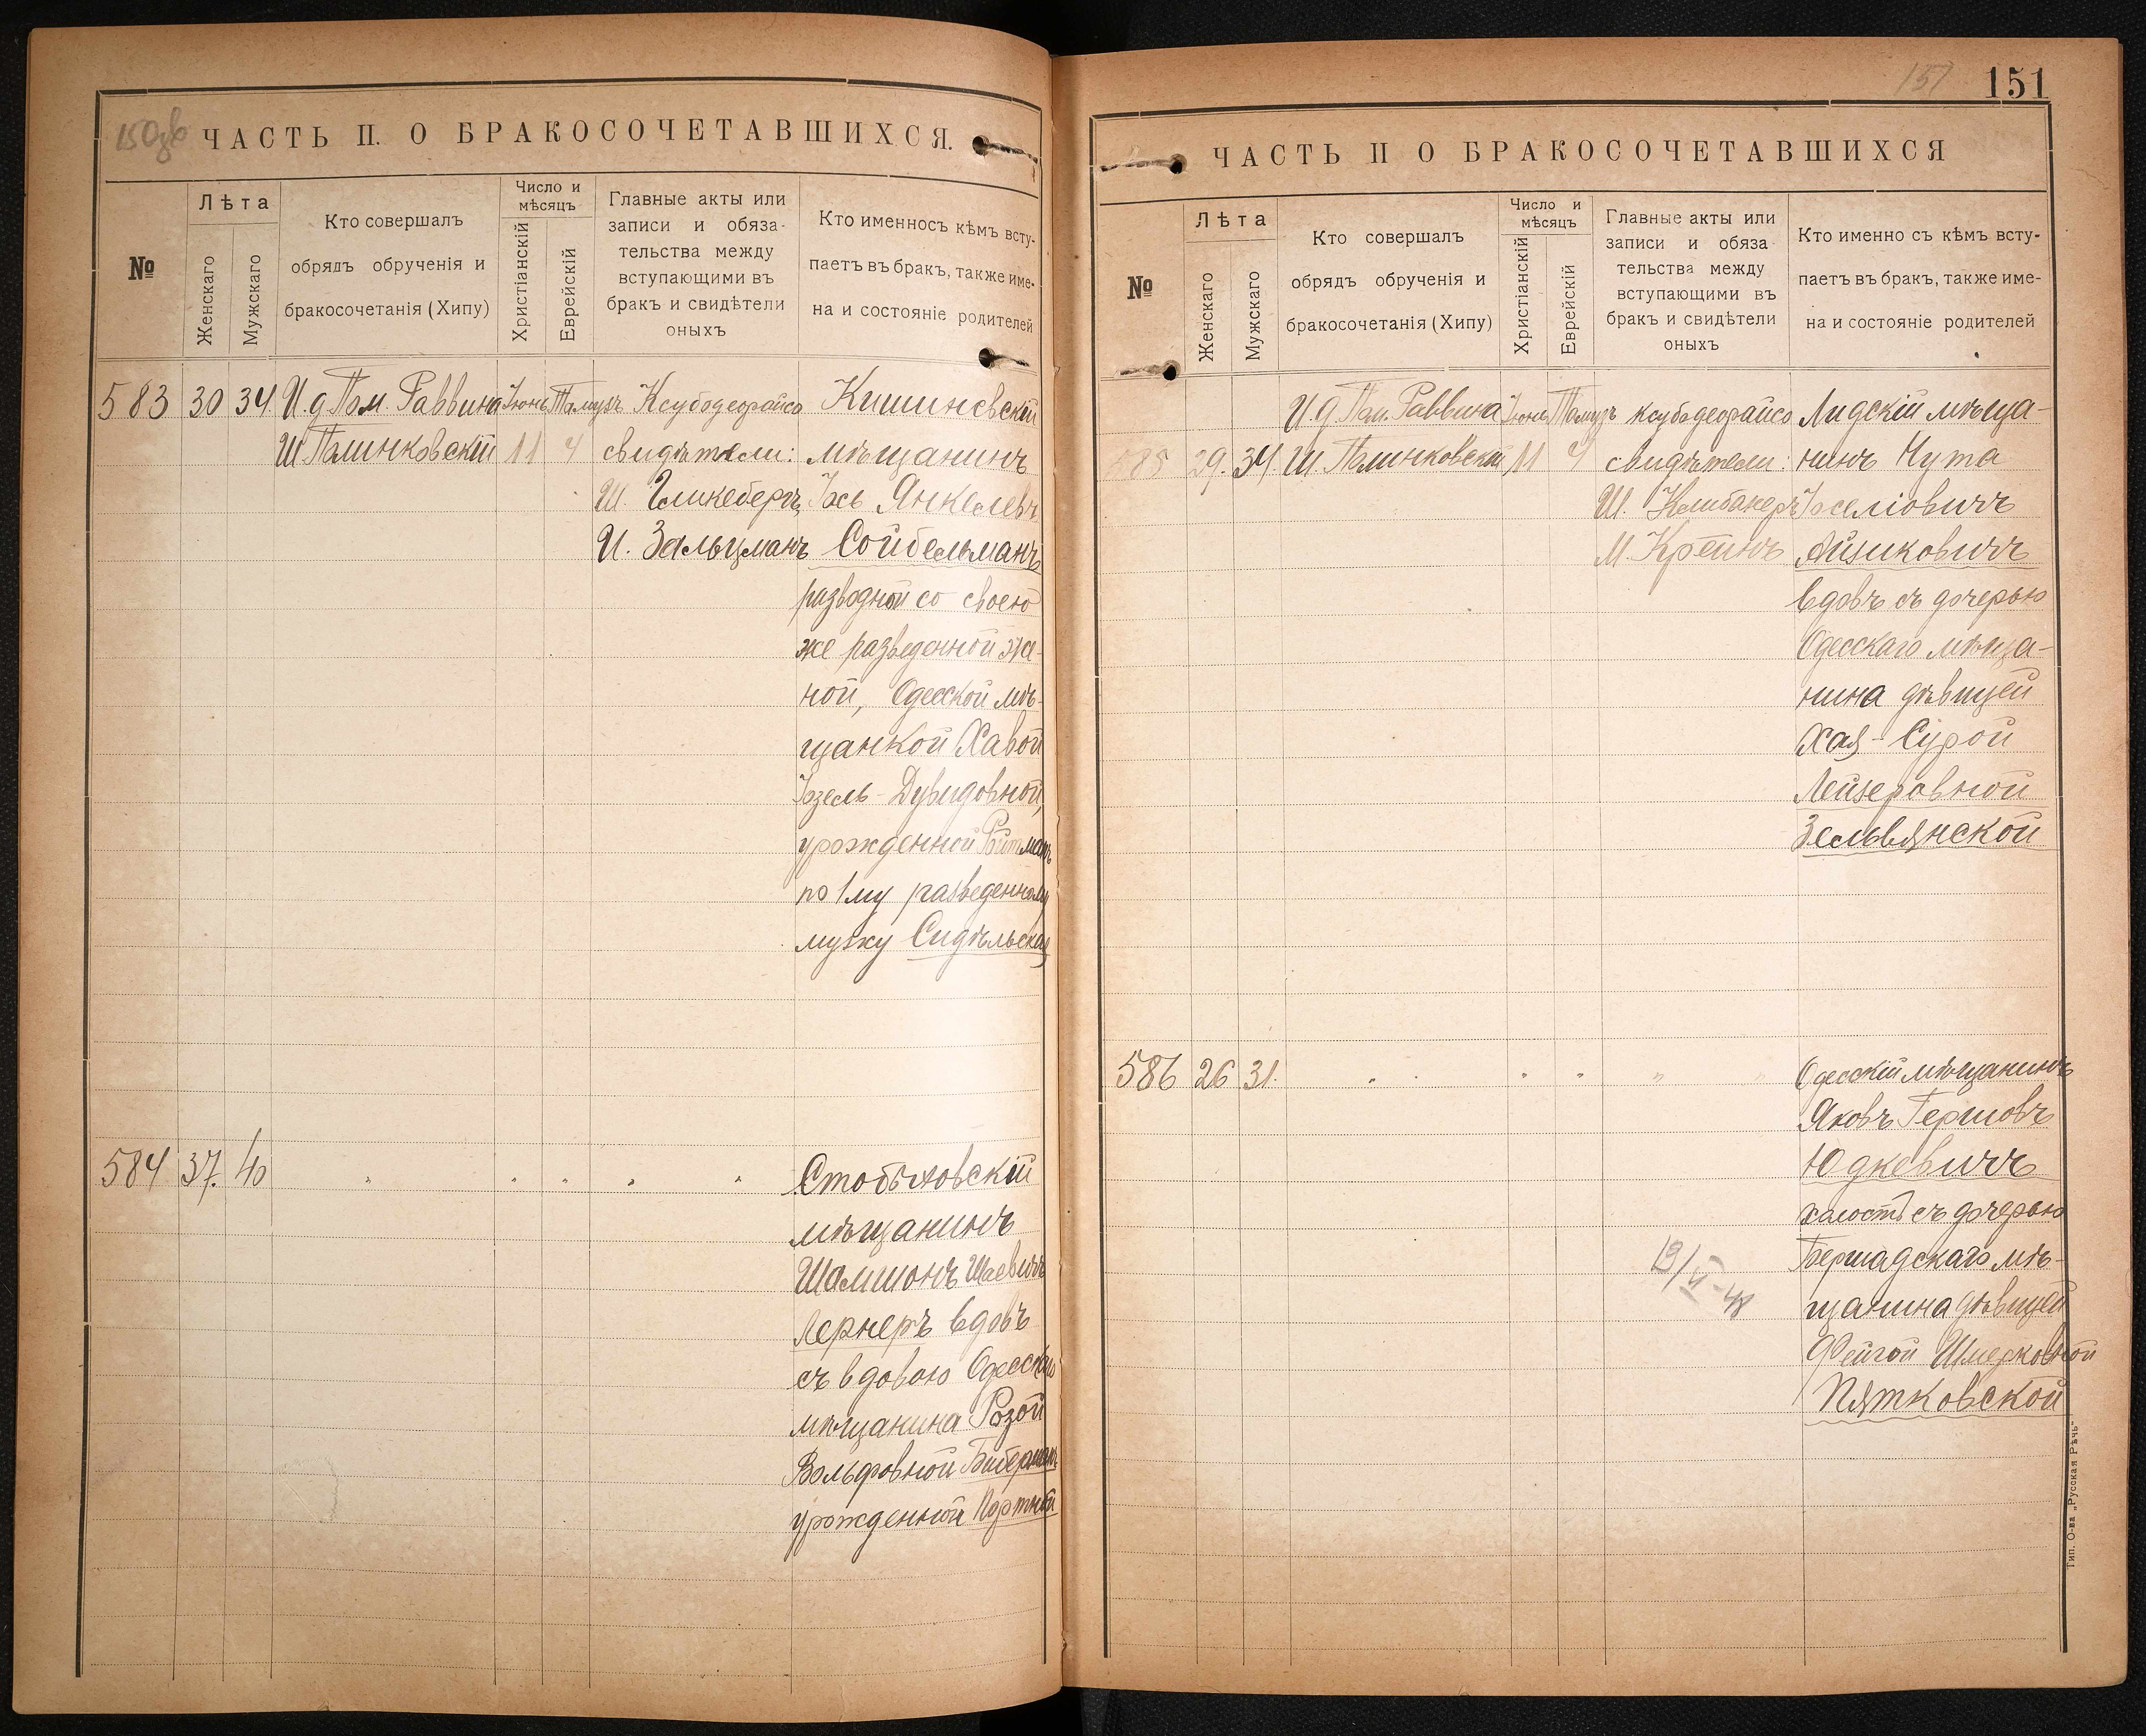 150зв
ЧАСТЬ II. О БРАКОСОЧЕТАВШИХСЯ.
№
Лѣта
Женскаго
Мужскаго
Кто совершалъ
обрядъ обрученія и
бракосочетанія (Хипу)
Число и
мѣсяцъ
Христіанскій
Еврейскій
Главные акты или
записи и обяза-
тельства между
вступающими въ
бракъ и свидѣтели
оныхъ
Кто именносъ кѣмъ всту-
паетъ въ бракъ, также име-
на и состояніе родителей
583 30 34 И.д. Пом. Раввина Іюнь Тамузъ Ксубодеорайсо Кишиневскій
Ш Палинковскій 11 4 свидѣтели: мѣщанинъ
Ш. Гликбергъ Іось Янкелевъ
И. Зальцманъ Сойбельманъ
разводной со своею
же разведенной же-
ной, Одесской мѣ-
щанкой Хавой
Дувидовной,
урожденной Ройтманъ
по 1му разведенному
мужу Сидѣльская
584 37. 40 " " " " "
мѣщанинъ
Шамшонъ Шаевичъ
Лернеръ вдовъ
съ вдовою Одесскаго
мѣщанина Розой
Вольфовной Биберманъ
урожденной Портной
151
151
ЧАСТЬ II О БРАКОСОЧЕТАВШИХСЯ
№
Лѣта
Женскаго
Мужскаго
Кто совершалъ
обрядъ обрученія и
бракосочетанія (Хипу)
Число и
мѣсяцъ
Христіанскій
Еврейскій
Главные акты или
записи и обяза
тельства между
вступающими въ
бракъ и свидѣтели
оныхъ
Кто именно съ кѣмъ всту-
паетъ въ бракъ, также име-
на и состояніе родителей
И.д. Пом. Раввина Іюнь Тамузъ ксубодеорайсо Лидскій мѣща-
585 29. 34. Ш. Палинковскій 11 4 свидѣтели: нинъ Нута
Ш. Клибанеръ Іоселіовичъ
М. Крейнъ Айзиковичъ
вдовъ съ дочерью
Одесскаго мѣща-
нина дѣвицей
Хая-Сурой
Лейзеровной
Зельвянской
586 26 31. " " " " " " Одесскій мѣщанинъ
Яковъ Гершовъ
Юдкевичъ
холостъ съ дочерью
Бершадскаго мѣ-
щанина дѣвицей
Фейгой Шмерковной
Пятковской
Тип. О-ва „Русская Рѣчь"